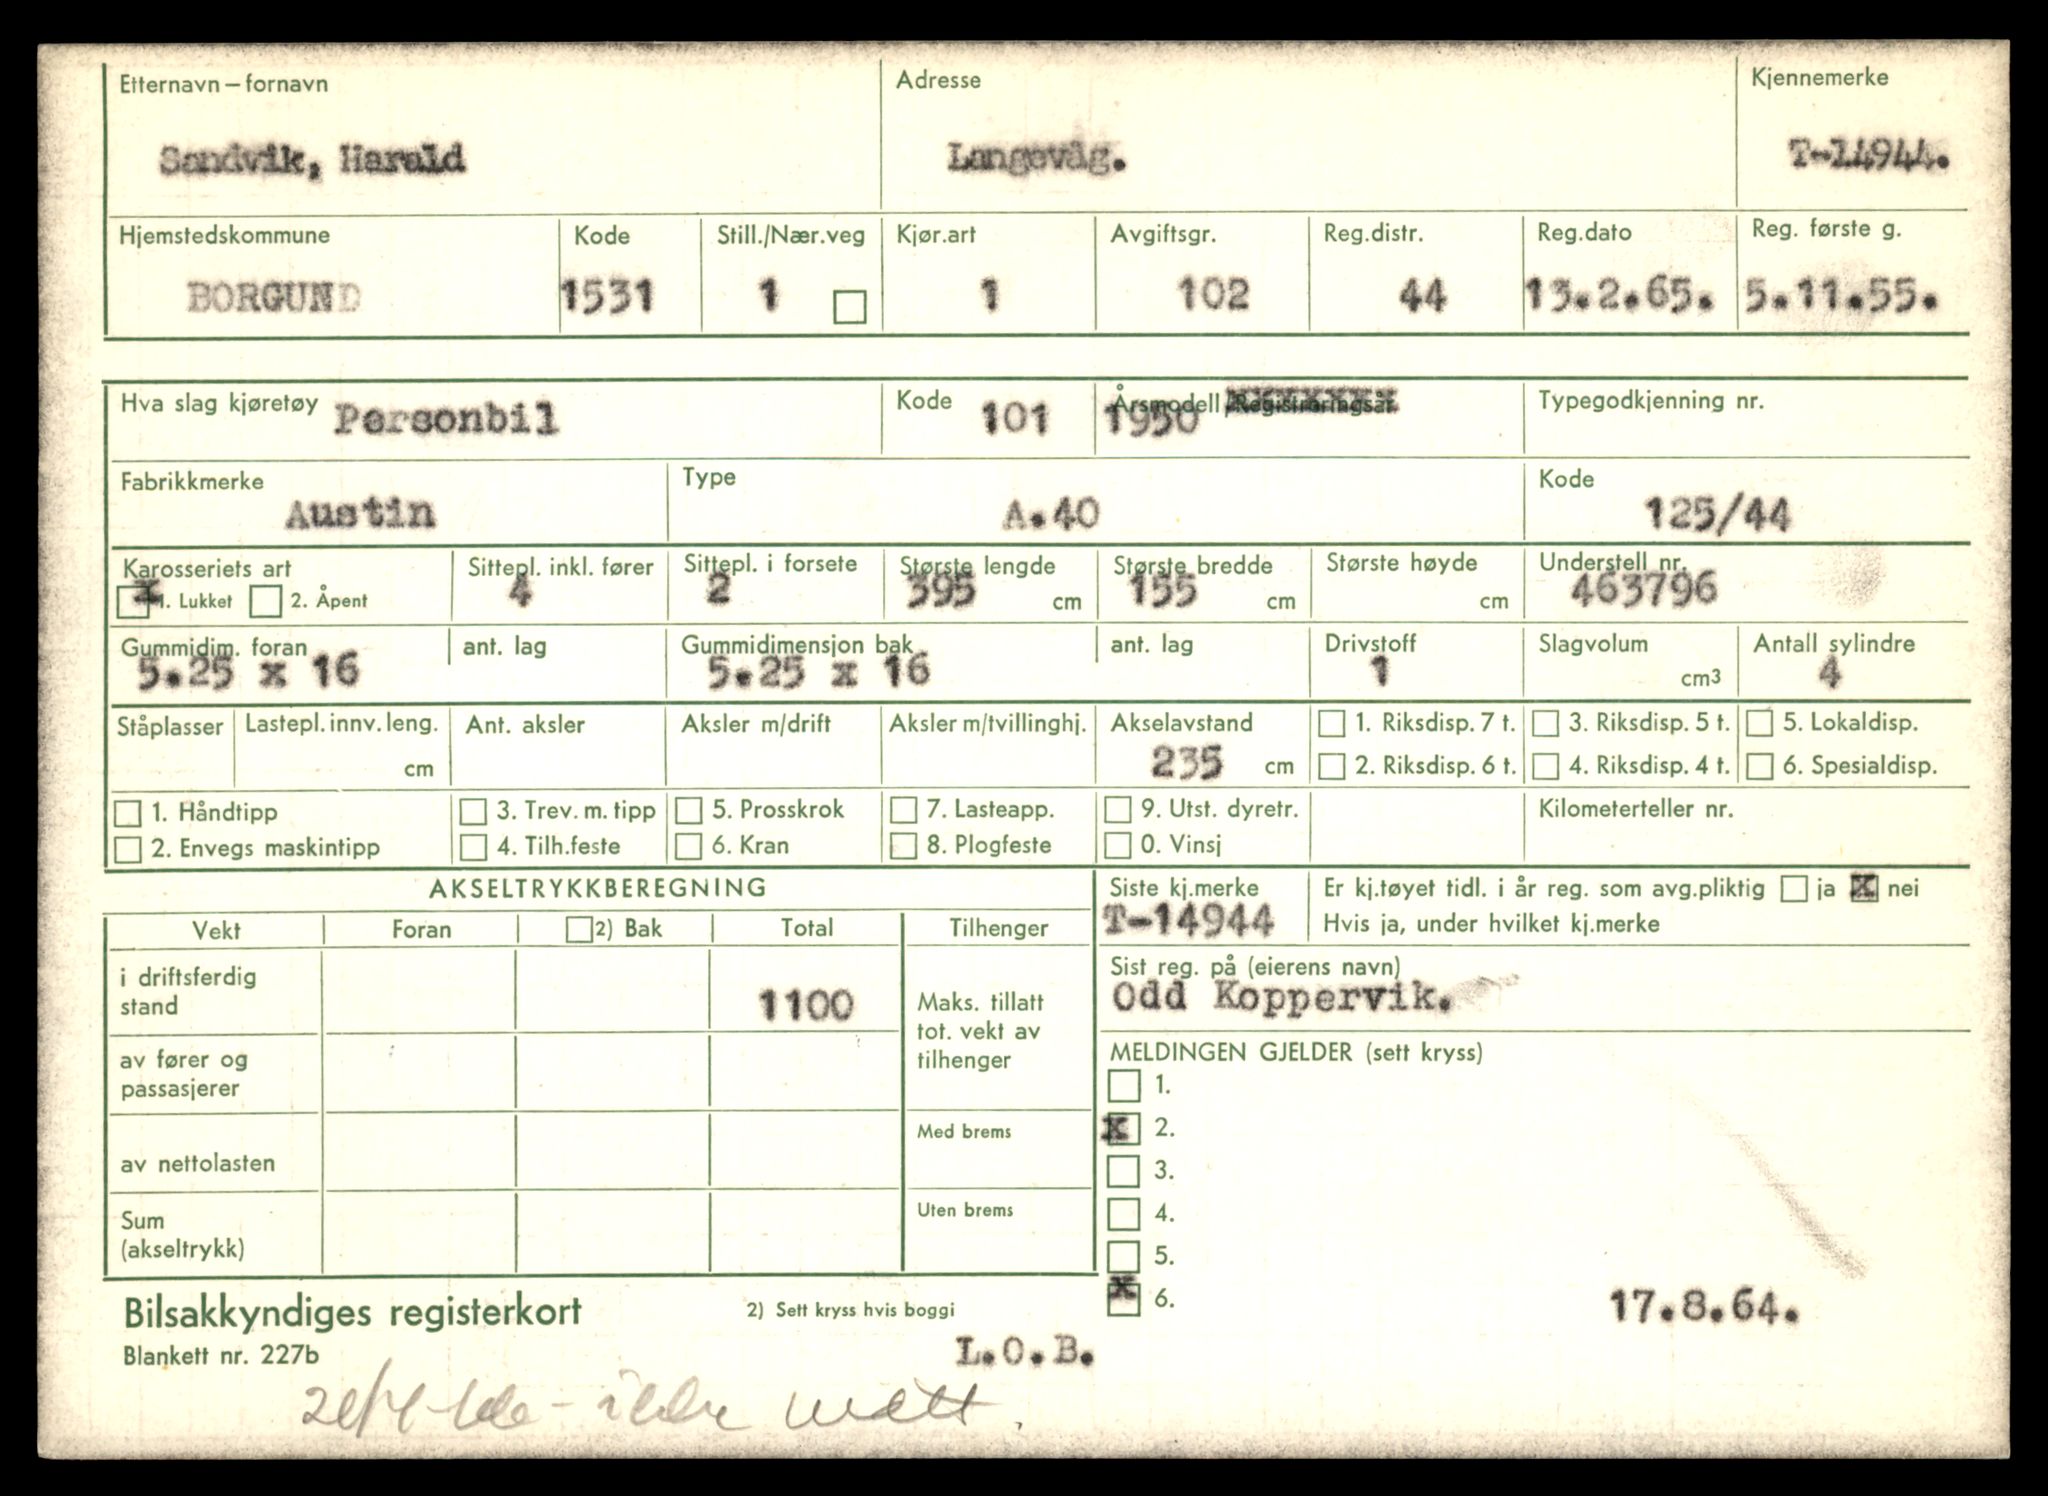 Etternavn – fornavn Adresse Kjennemerke
Sandvik, Harald Langevåg. T-14944.
Hjemstedskommune Kode Still./Nær.veg Kjør.art Avgiftsgr. Reg.distr. Reg.dato Reg. første g.
BORGUND 1531 1 1 102 44 13.2.65. 5.11.55.
Hva slag kjøretøy Personbil Kode 101 Årsmodell/Registreringsår 1950 Typegodkjenning nr.
Fabrikkmerke Type Kode
Austin A.40 125/44
Karosseriets art Sittepl. inkl. fører Sittepl. i forsete Største lengde Største bredde Største høyde Understell nr.
x 1. Lukket 2. Åpent 4 2 395 cm 155 cm cm 463796
Gummidim. foran ant. lag Gummidimensjon bak ant. lag Drivstoff Slagvolum Antall sylindre
5.25 x 16 5.25 x 16 1 cm3 4
Ståplasser Lastepl. innv. leng. Ant. aksler Aksler m/drift Aksler m/tvillinghj. Akselavstand 1. Riksdisp. 7 t. 3. Riksdisp. 5 t. 5. Lokaldisp.
cm 235 cm 2. Riksdisp. 6 t. 4. Riksdisp. 4 t. 6. Spesialdisp.
1. Håndtipp 3. Trev. m. tipp 5. Prosskrok 7. Lasteapp. 9. Utst. dyretr. Kilometerteller nr.
2. Envegs maskintipp 4. Tilh.feste 6. Kran 8. Plogfeste 0. Vinsj
AKSELTRYKKBEREGNING Siste kj.merke Er kj.tøyet tidl. i år reg. som avg.pliktig ja x nei
T-14944 Hvis ja, under hvilket kj.merke
Vekt Foran 2) Bak Total Tilhenger
Sist reg. på (eierens navn)
Odd Koppervik.
i driftsferdig stand 1100 Maks. tillatt tot. vekt av tilhenger
MELDINGEN GJELDER (sett kryss)
av fører og passasjerer
1.
Med brems x 2.
av nettolasten
3.
Uten brems 4.
Sum (akseltrykk)
5.
x 6. 17.8.64.
Bilsakkyndiges registerkort 2) Sett kryss hvis boggi
Blankett nr. 227b L.O.B.
ikke møtt.